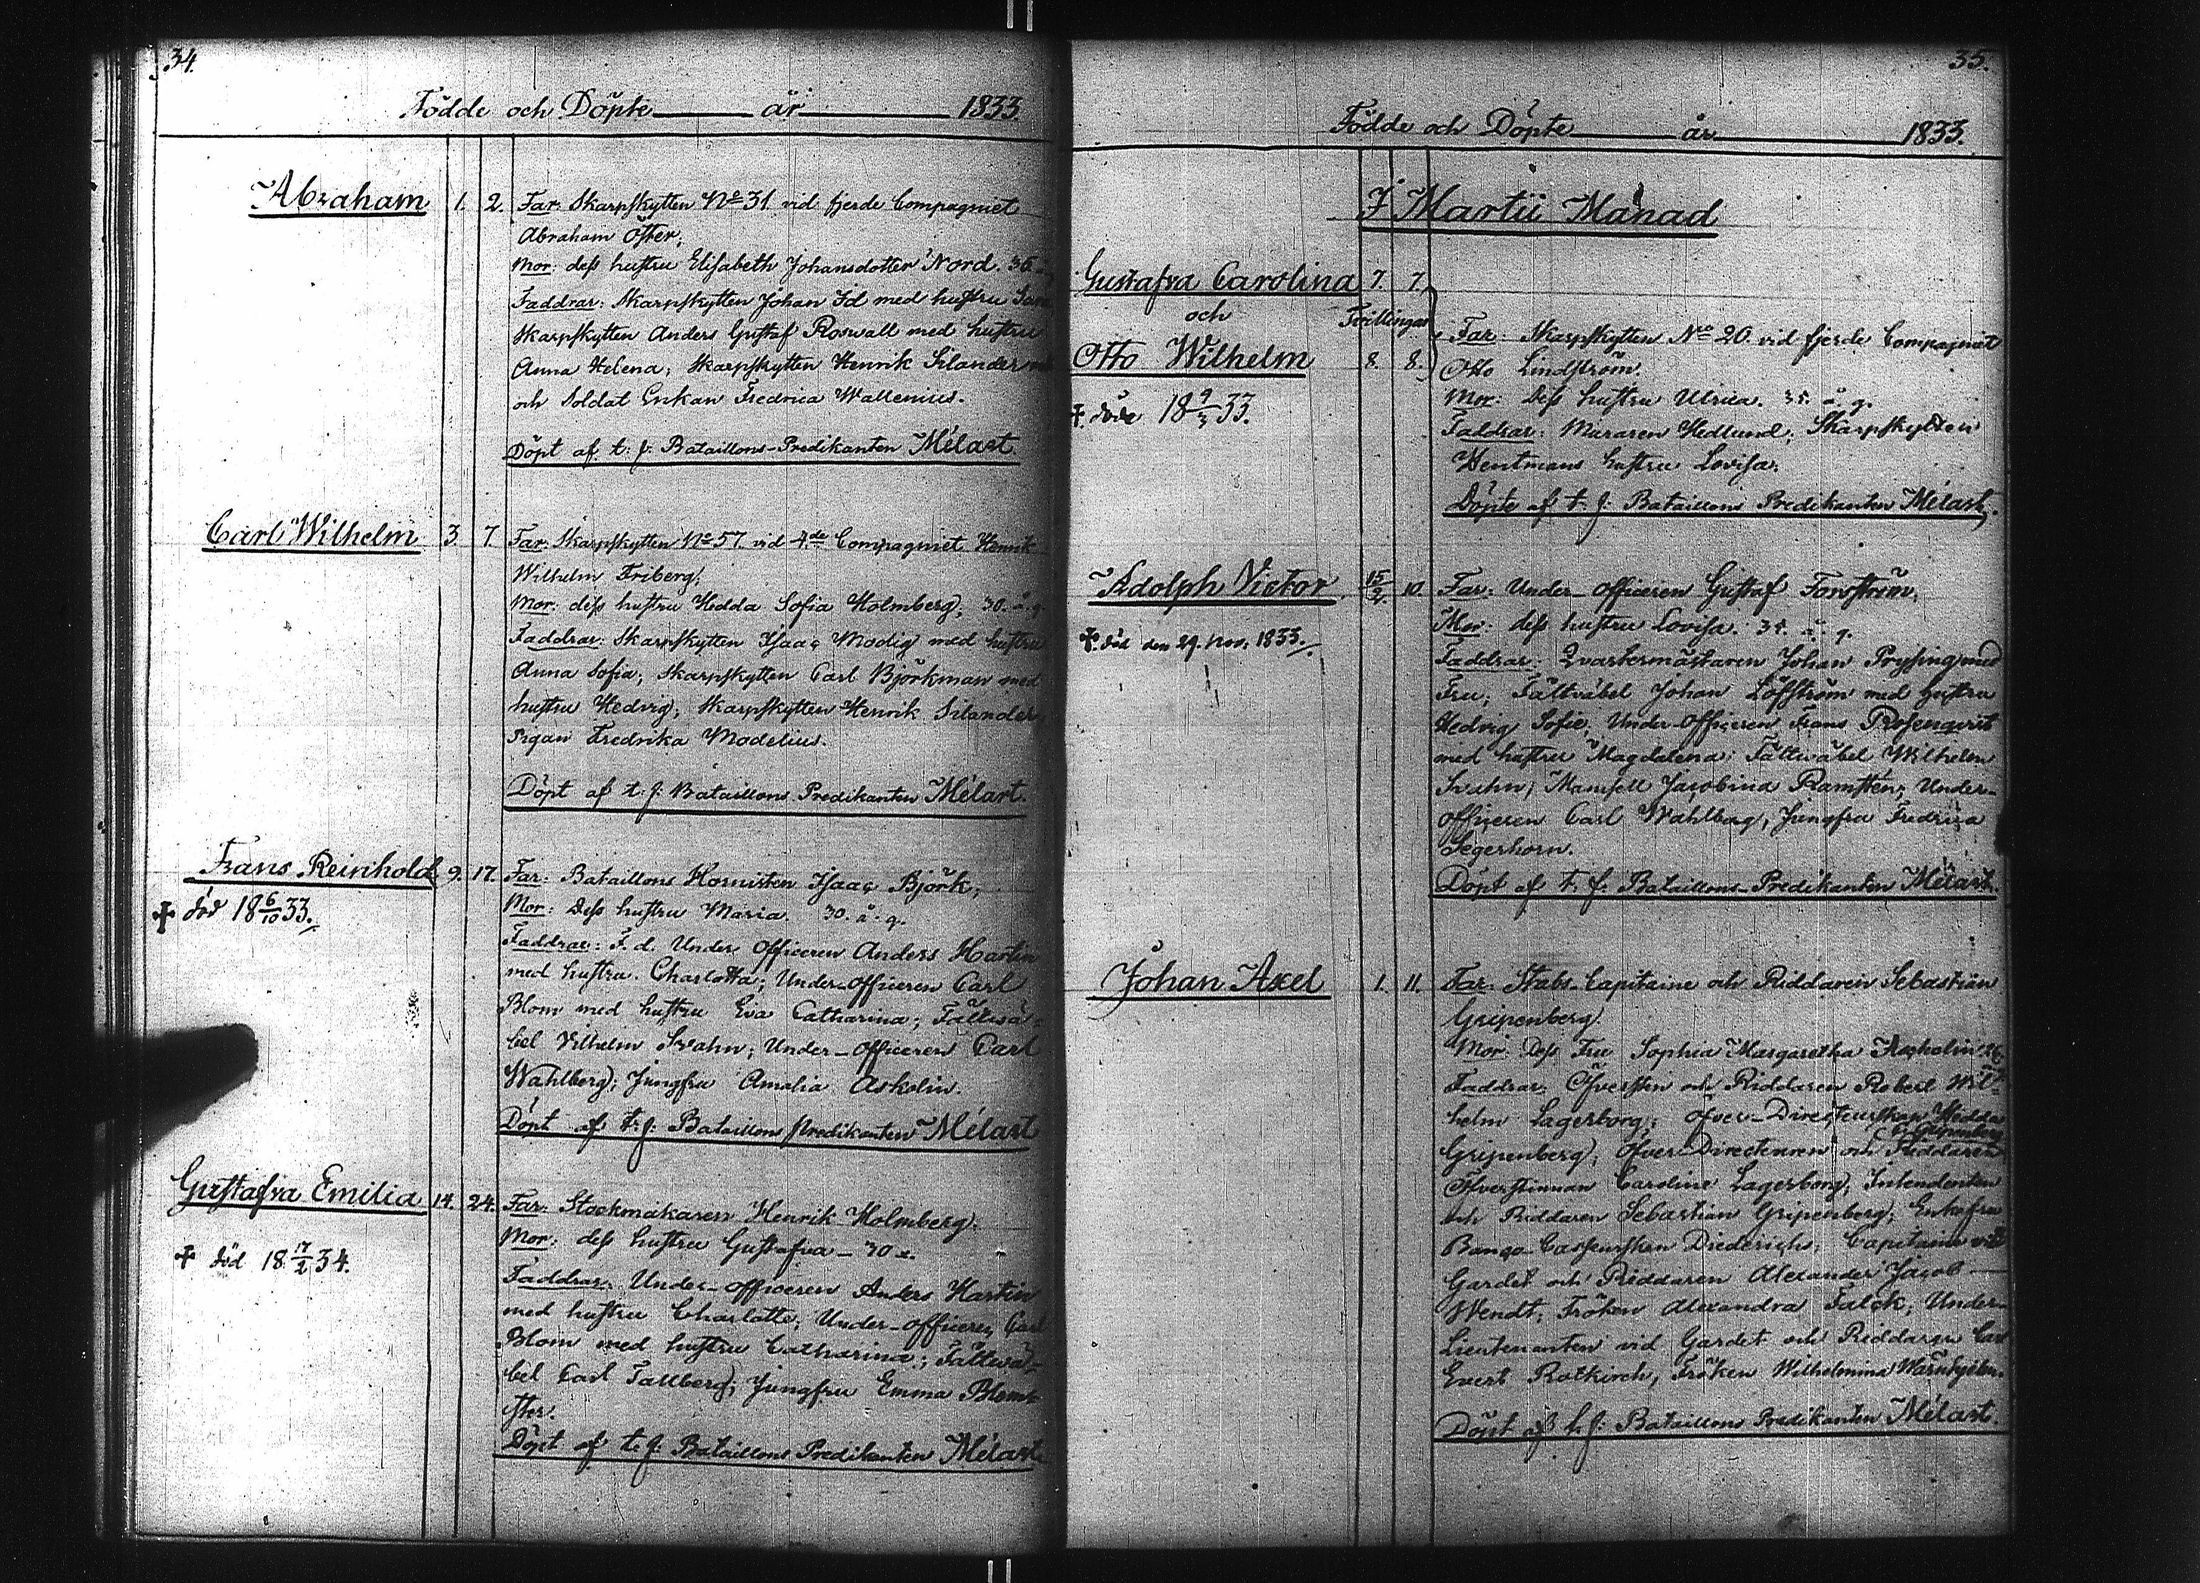 34.
Födde och Döpte år 1833.
Abraham 1. 2. Far: Skarpskytten No 31. vid fjerde Compagniet
Abraham Öster,
Mor: dess hustru Elisabeth Johansdotter Nord. 36
Faddrar: Skarpskytten Johan Id med hustru
Skarpskytten Anders Gustaf Roswall med hustru
Anna Helena; Skarpskytten Henrik Silander
och Soldat Enkan Fredrica Wallenius.
Döpt af t. f. Bataillons-Predikanten Mélart
Carl Wilhelm 3. 7. Far: Skarpskytten No 57. vid 4de Compagniet Henrik
Wilhelm Friberg;
Mor: dess hustru Hedda Sofia Holmberg; 30. å. g.
Faddrar: Skarpskytten Isaac Modig med hustru
Anna Sofia; Skarpskytten Carl Björkman med
hustru Hedvig; Skarpskytten Henrik Silander,
Pigan Fredrika Modelius.
Döpt af t. f. Bataillons Predikanten Mélart.
Frans Reinhold 9. 17. Far: Bataillons Hornisten Isaac Björk;
† död 18 6/10 33. Mor: Dess hustru Maria. 30. å. g.
Faddrar: F. d. Under Officeren Anders Martin
med hustru Charlotta; Under-Officeren Carl
Blom med hustru Eva Catharina; Fältwä-
bel Vilhelm Svahn; Under-Officeren Carl
Wahlberg; Jungfru Amalia Askolin.
Döpt af t. f. Bataillons Predikanten Mélart
Gustafva Emilia 14. 24. Far: Stockmakaren Henrik Holmberg;
Mor: dess hustru Gustafva - 30
† död 18 17/2 34.
Faddrar: Under-Officeren Anders Martin
med hustru Charlotte; Under-Officeren Carl
Blom med hustru Catharina; Fältwä-
bel Carl Tallberg; Jungfru Emma Blom-
ster.
Döpt af t. f. Bataillons Predikanten Mélart
35.
Födde och Döpte år 1833.
I Martii Månad
Gustafva Carolina 7. 7.
och Tvillingar
Far: Skarpskytten Nro 20. vid fjerde Compagniet
Otto Wilhelm 8. 8. Otto Lindström.
† döde 18 9/3 33. Mor: Dess hustru Ulrica. 35. å. g.
Faddrar: Muraren Hedlund; Skarpskytten
Wentmans hustru Lovisa;
Döpte af t. f. Bataillons Predikanten Mélart.
Adolph Victor 15/2. 10. Far: Under-Officeren Gustaf Forsström;
Mor: dess hustru Lovisa. 35. å. g.
† död den 29. Nov. 1833.
Faddrar: Qvartermästaren Johan Prysing med
Fru; Fältväbel Johan Löfström med hustru
Hedvig Sofie, Under-Officeren Frans Rosenqvist
med hustru Magdalena; Fältwäbel Wilhelm
Svahn; Mamsell Jacobina Ramstén; Under-
officeren Carl Wahlberg, Jungfru Fredrica
Segerhorn.
Döpt af t. f. Bataillons-Predikanten Mélart.
Johan Axel 1. 11. Far: Stabs-Capitaine och Riddaren Sebastian
Gripenberg.
Mor: Dess Fru Sophia Margaretha
Faddrar: Öfversten och Riddaren Robert Wil-
helm Lagerborg; Öfver-Directeurskan Hedda
Gripenberg; Öfver-Directeuren och Riddaren
Öfverstinnan Caroline Lagerborg; Intendenten
och Riddaren Sebastian Gripenberg; Enkefru
Banqo-Casseurskan Diederichs; Capitaine vid
Gardet och Riddaren Alexander Jacob
Wendt; Fröken Alexandra Falck; Under-
Lieutenanten vid Gardet och Riddaren Carl
Evert Rotkirch, Fröken Wilhelmina
Döpt af t. f. Bataillons Predikanten Mélart.